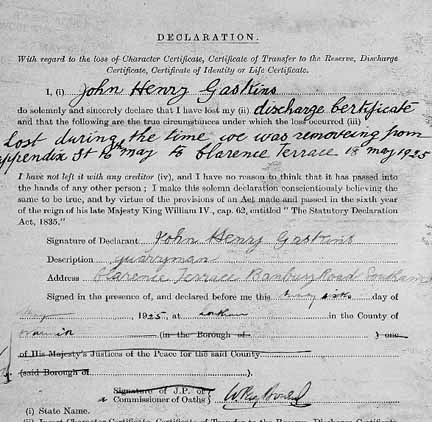 DECLARATION.
With regard to the loss of Character Certificate, Certificate of Transfer to the Reserve, Discharge
Certificate, Certificate of Identity or Life Certificate.
I, (i) John Henry Gaskins
do solemnly and sincerely declare that I have lost my (ii) discharge Certificate
and that the following are the true circumstances under which the loss occurred (iii)
Lost during the time we was removeing from
appendix St 16th may to Clarence Terrace 18 may 1925
I have not left it with any creditor (iv), and I have no reason to think that it has passed into
the hands of any other person ; I make this solemn declaration conscientiously believing the
same to be true, and by virtue of the provisions of an Act made and passed in the sixth year
of the reign of his late Majesty King William IV., cap. 62, entitled " The Statutory Declaration
Act, 1835."
Signature of Declarant John Henry Gaskins
Description quarryman
Address Clarence Terrace Banbury Road Southam
Signed in the presence of, and declared before me this day of
1925, at in the County of
Warwick (in the Borough of ) one
of His Majesty's Justices of the Peace for the said County
(said Borough of ).
Signature of J.P. or
a Commissioner of Oaths
(i) State Name.